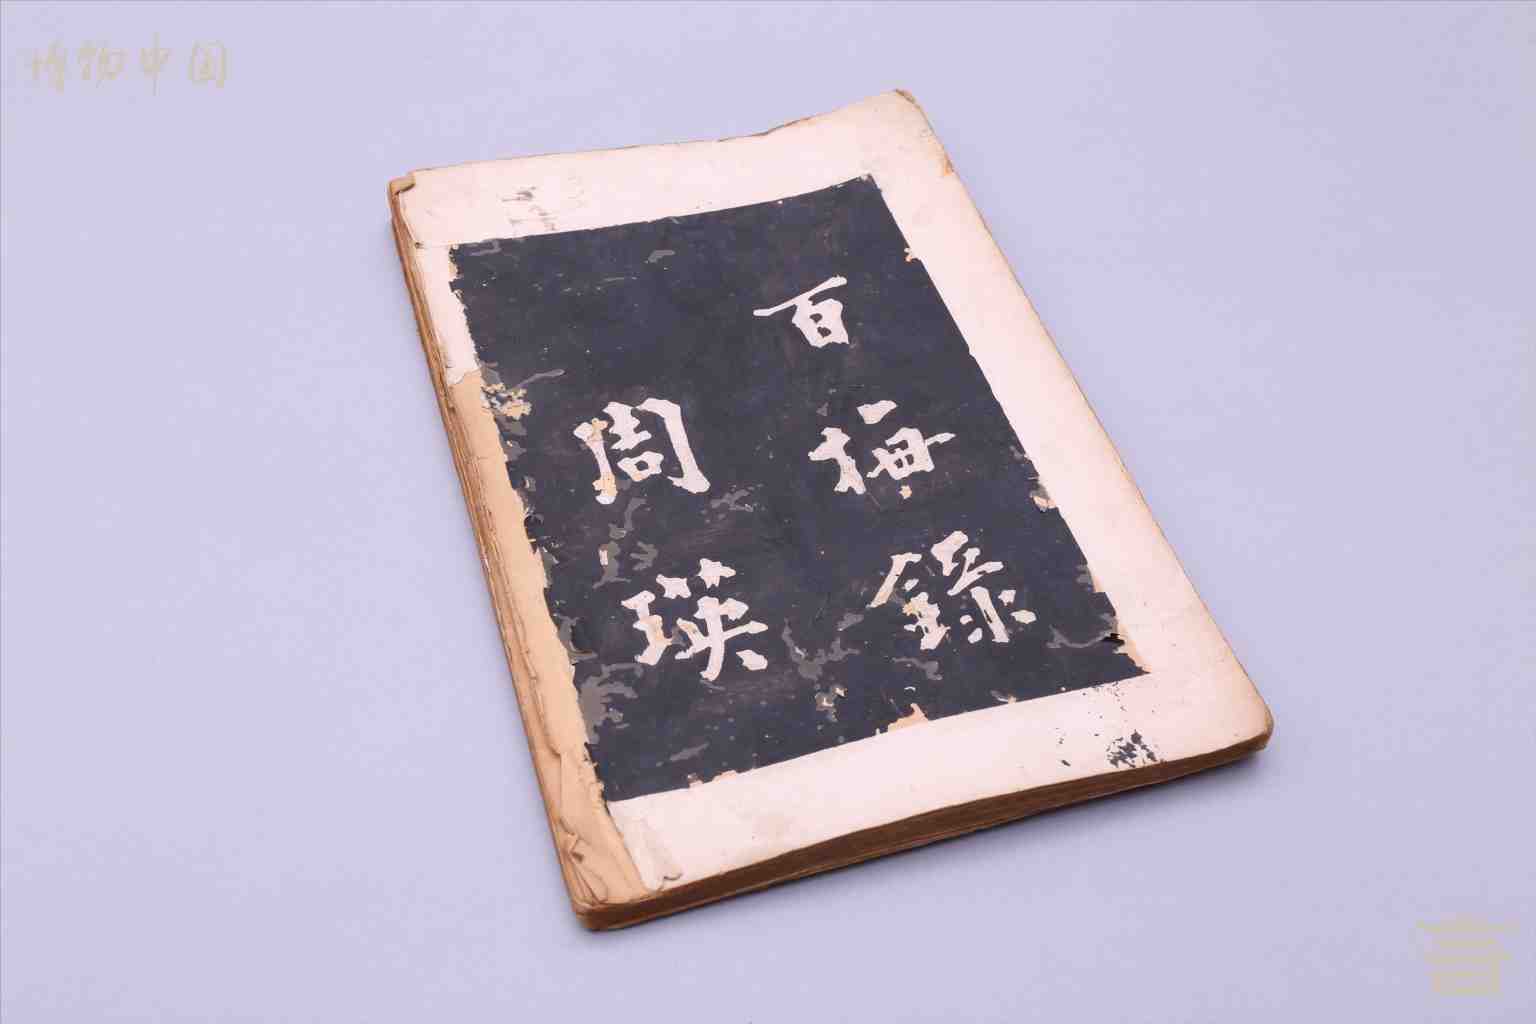 博物中国
百梅錄
周瑛